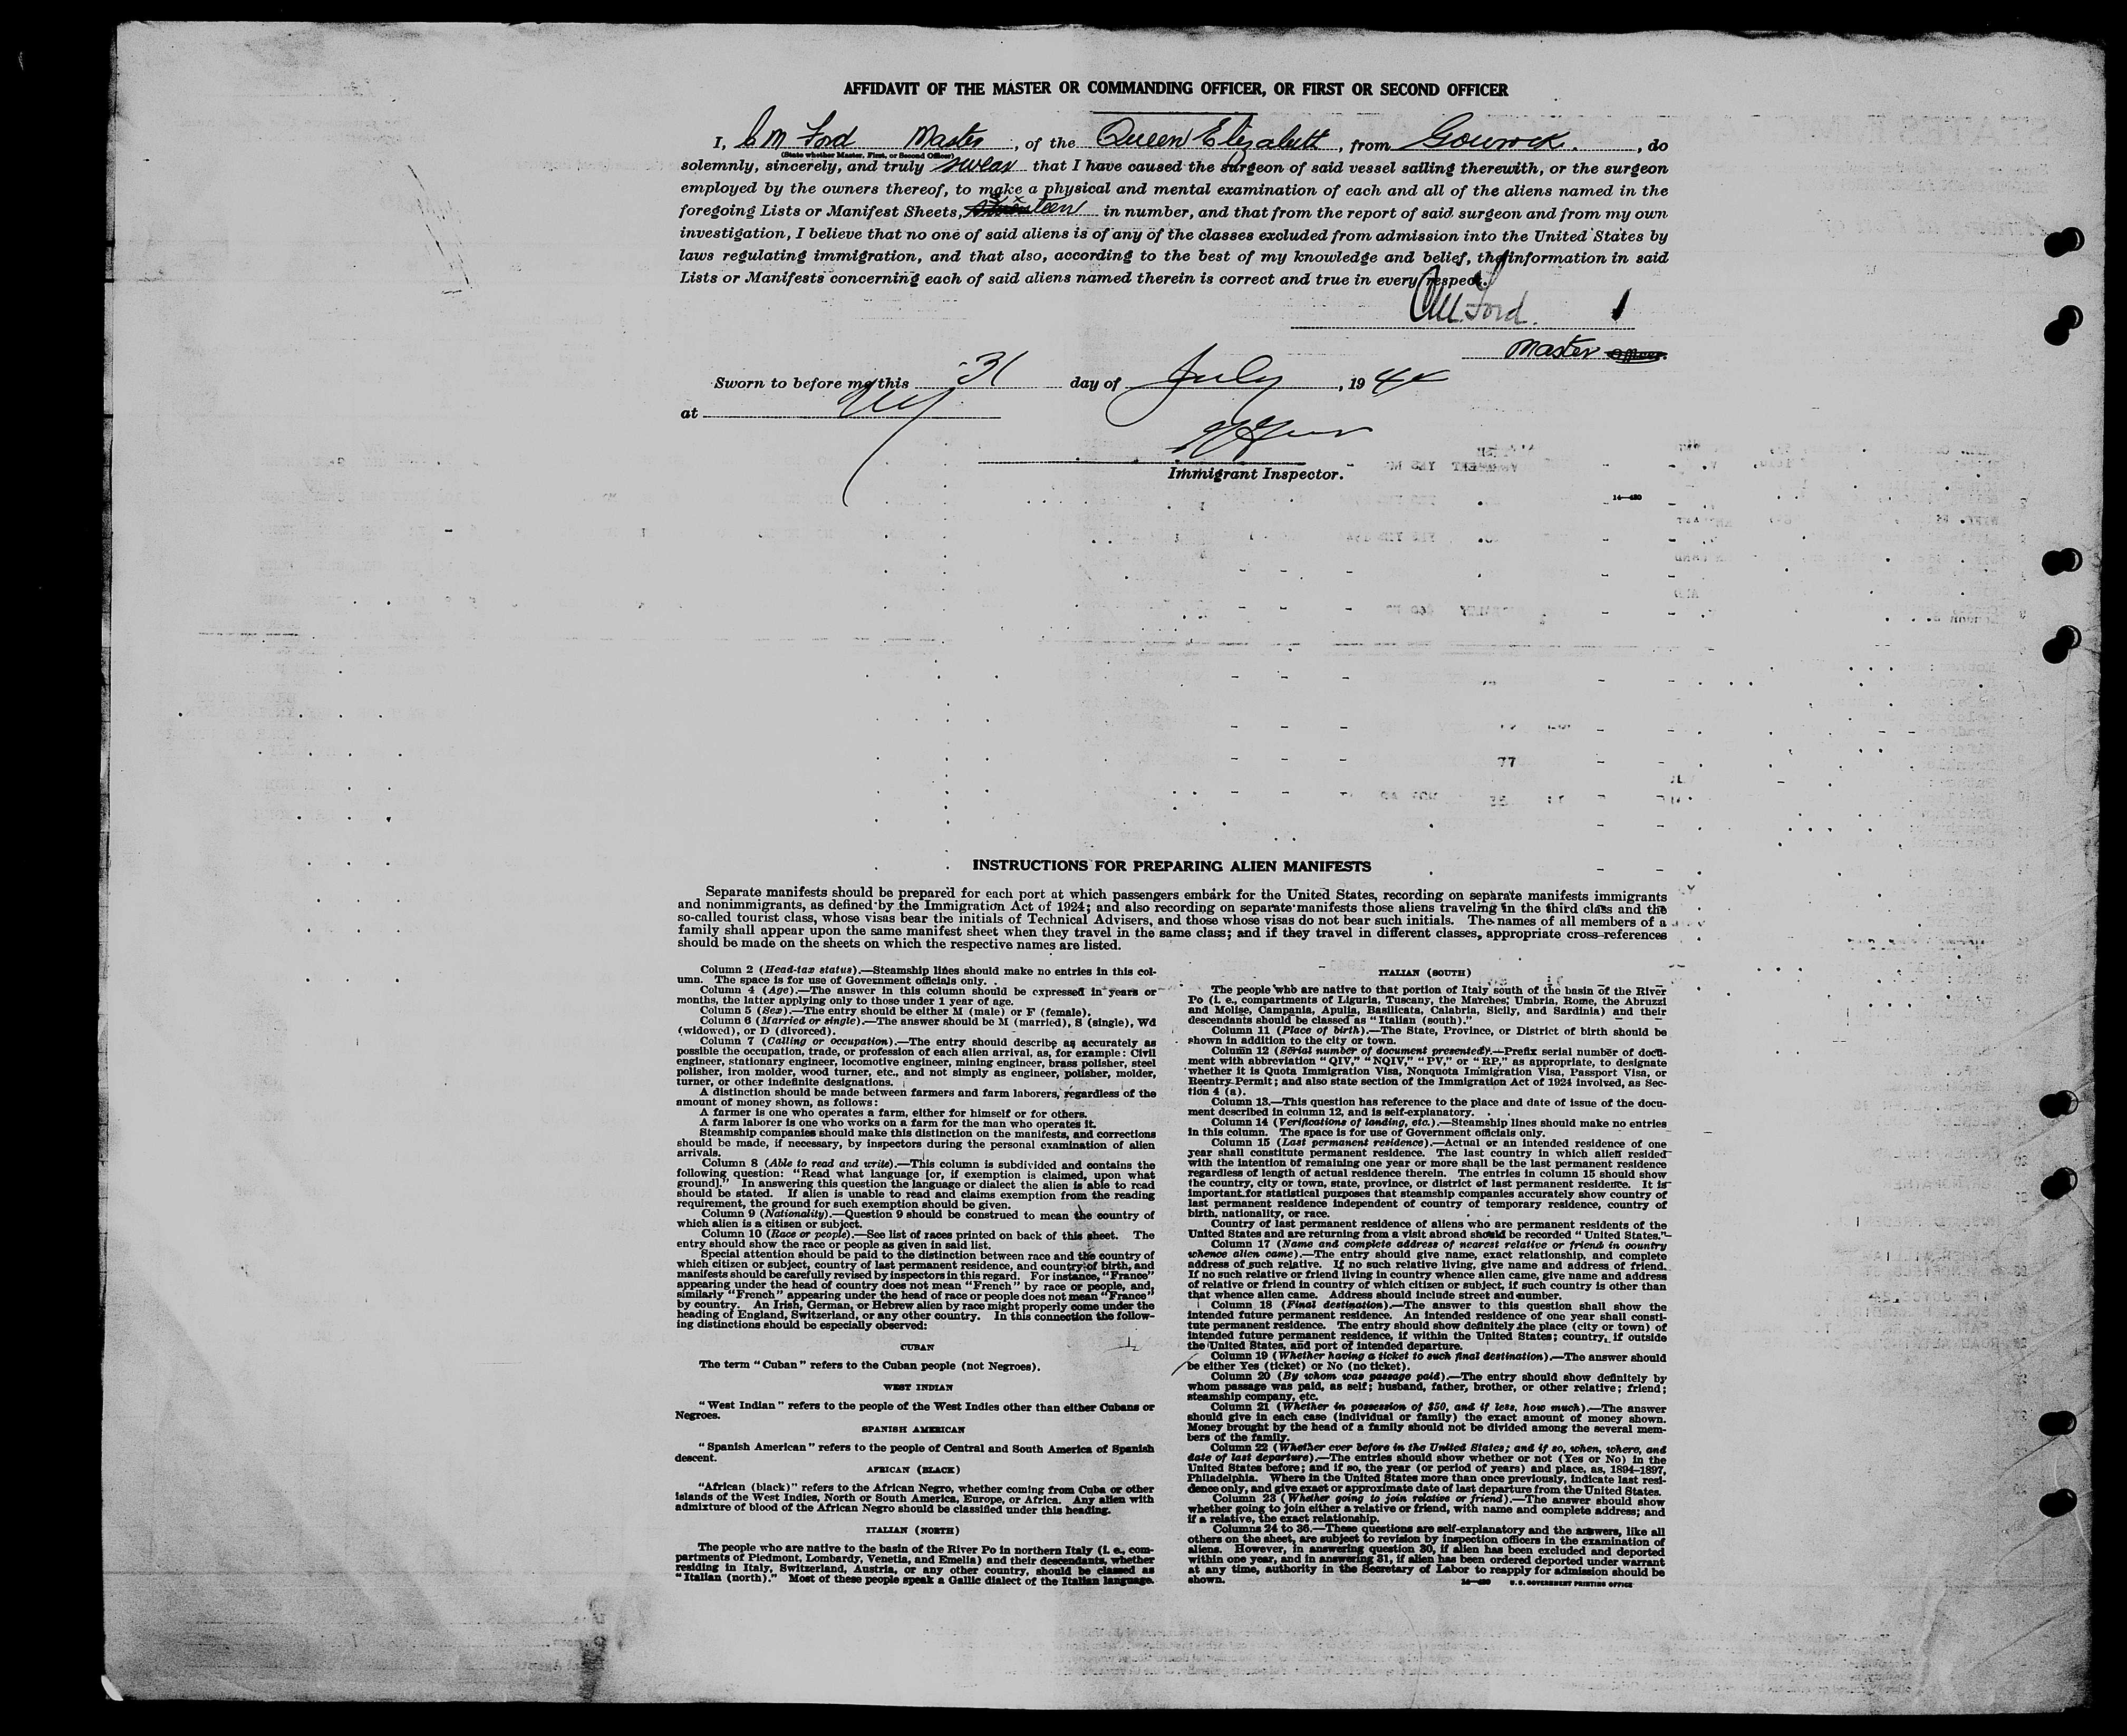 AFFIDAVIT OF THE MASTER OR COMMANDING OFFICER, OR FIRST OR SECOND OFFICER
I, C M Ford Master, of the Queen Elizabeth, from Gourock., do
(State whether Master, First, or Second Officer)
solemnly, sincerely, and truly swear that I have caused the surgeon of said vessel sailing therewith, or the surgeon
employed by the owners thereof, to make a physical and mental examination of each and all of the aliens named in the
foregoing Lists or Manifest Sheets, in number, and that from the report of said surgeon and from my own
investigation, I believe that no one of said aliens is of any of the classes excluded from admission into the United States by
laws regulating immigration, and that also, according to the best of my knowledge and belief, the information in said
Lists or Manifests concerning each of said aliens named therein is correct and true in every respect.
CM Ford.
Master Officer.
Sworn to before me this 31 day of July, 1944
at NY
Immigrant Inspector.
14—480
INSTRUCTIONS FOR PREPARING ALIEN MANIFESTS
Separate manifests should be prepared for each port at which passengers embark for the United States, recording on separate manifests immigrants
and nonimmigrants, as defined by the Immigration Act of 1924; and also recording on separate manifests those aliens traveling in the third class and the
so-called tourist class, whose visas bear the initials of Technical Advisers, and those whose visas do not bear such initials. The names of all members of a
family shall appear upon the same manifest sheet when they travel in the same class; and if they travel in different classes, appropriate cross-references
should be made on the sheets on which the respective names are listed.
Column 2 (Head-tax status).—Steamship lines should make no entries in this col-
umn. The space is for use of Government officials only.
Column 4 (Age).—The answer in this column should be expressed in years or
months, the latter applying only to those under 1 year of age.
Column 5 (Sex).—The entry should be either M (male) or F (female).
Column 6 (Married or single).—The answer should be M (married), S (single), Wd
(widowed), or D (divorced).
Column 7 (Calling or occupation).—The entry should describe as accurately as
possible the occupation, trade, or profession of each alien arrival, as, for example: Civil
engineer, stationary engineer, locomotive engineer, mining engineer, brass polisher, steel
polisher, iron molder, wood turner, etc., and not simply as engineer, polisher, molder,
turner, or other indefinite designations.
A distinction should be made between farmers and farm laborers, regardless of the
amount of money shown, as follows:
A farmer is one who operates a farm, either for himself or for others.
A farm laborer is one who works on a farm for the man who operates it.
Steamship companies should make this distinction on the manifests, and corrections
should be made, if necessary, by inspectors during the personal examination of alien
arrivals.
Column 8 (Able to read and write).—This column is subdivided and contains the
following question: "Read what language [or, if exemption is claimed, upon what
ground]." In answering this question the language or dialect the alien is able to read
should be stated. If alien is unable to read and claims exemption from the reading
requirement, the ground for such exemption should be given.
Column 9 (Nationality).—Question 9 should be construed to mean the country of
which alien is a citizen or subject.
Column 10 (Race or people).—See list of races printed on back of this sheet. The
entry should show the race or people as given in said list.
Special attention should be paid to the distinction between race and the country of
which citizen or subject, country of last permanent residence, and country of birth, and
manifests should be carefully revised by inspectors in this regard. For instance, "France"
appearing under the head of country does not mean "French" by race or people, and,
similarly "French" appearing under the head of race or people does not mean "France"
by country. An Irish, German, or Hebrew alien by race might properly come under the
heading of England, Switzerland, or any other country. In this connection the follow-
ing distinctions should be especially observed:
CUBAN
The term "Cuban" refers to the Cuban people (not Negroes).
WEST INDIAN
"West Indian" refers to the people of the West Indies other than either Cubans or
Negroes.
SPANISH AMERICAN
"Spanish American" refers to the people of Central and South America of Spanish
descent.
AFRICAN (BLACK)
"African (black)" refers to the African Negro, whether coming from Cuba or other
islands of the West Indies, North or South America, Europe, or Africa. Any alien with
admixture of blood of the African Negro should be classified under this heading.
ITALIAN (NORTH)
The people who are native to the basin of the River Po in northern Italy (i. e., com-
partments of Piedmont, Lombardy, Venetia, and Emelia) and their descendants, whether
residing in Italy, Switzerland, Austria, or any other country, should be classed as
"Italian (north)." Most of these people speak a Gallic dialect of the Italian language.
ITALIAN (SOUTH)
The people who are native to that portion of Italy south of the basin of the River
Po (i. e., compartments of Liguria, Tuscany, the Marches, Umbria, Rome, the Abruzzi
and Molise, Campania, Apulia, Basilicata, Calabria, Sicily, and Sardinia) and their
descendants should be classed as "Italian (south)."
Column 11 (Place of birth).—The State, Province, or District of birth should be
shown in addition to the city or town.
Column 12 (Serial number of document presented).—Prefix serial number of docu-
ment with abbreviation "QIV," "NQIV," "PV," or "RP," as appropriate, to designate
whether it is Quota Immigration Visa, Nonquota Immigration Visa, Passport Visa, or
Reentry Permit; and also state section of the Immigration Act of 1924 involved, as Sec-
tion 4 (a).
Column 13.—This question has reference to the place and date of issue of the docu-
ment described in column 12, and is self-explanatory.
Column 14 (Verifications of landing, etc.).—Steamship lines should make no entries
in this column. The space is for use of Government officials only.
Column 15 (Last permanent residence).—Actual or an intended residence of one
year shall constitute permanent residence. The last country in which alien resided
with the intention of remaining one year or more shall be the last permanent residence
regardless of length of actual residence therein. The entries in column 15 should show
the country, city or town, state, province, or district of last permanent residence. It is
important for statistical purposes that steamship companies accurately show country of
last permanent residence independent of country of temporary residence, country of
birth, nationality, or race.
Country of last permanent residence of aliens who are permanent residents of the
United States and are returning from a visit abroad should be recorded "United States."
Column 17 (Name and complete address of nearest relative or friend in country
whence alien came).—The entry should give name, exact relationship, and complete
address of such relative. If no such relative living, give name and address of friend.
If no such relative or friend living in country whence alien came, give name and address
of relative or friend in country of which citizen or subject, if such country is other than
that whence alien came. Address should include street and number.
Column 18 (Final destination).—The answer to this question shall show the
intended future permanent residence. An intended residence of one year shall consti-
tute permanent residence. The entry should show definitely the place (city or town) of
intended future permanent residence, if within the United States; country, if outside
the United States, and port of intended departure.
Column 19 (Whether having a ticket to such final destination).—The answer should
be either Yes (ticket) or No (no ticket).
Column 20 (By whom was passage paid).—The entry should show definitely by
whom passage was paid, as self; husband, father, brother, or other relative; friend;
steamship company, etc.
Column 21 (Whether in possession of $50, and if less, how much).—The answer
should give in each case (individual or family) the exact amount of money shown.
Money brought by the head of a family should not be divided among the several mem-
bers of the family.
Column 22 (Whether ever before in the United States; and if so, when, where, and
date of last departure).—The entries should show whether or not (Yes or No) in the
United States before; and if so, the year (or period of years) and place, as, 1894–1897,
Philadelphia. Where in the United States more than once previously, indicate last resi-
dence only, and give exact or approximate date of last departure from the United States.
Column 23 (Whether going to join relative or friend).—The answer should show
whether going to join either a relative or friend, with name and complete address; and
if a relative, the exact relationship.
Columns 24 to 36.—These questions are self-explanatory and the answers, like all
others on the sheet, are subject to revision by inspection officers in the examination of
aliens. However, in answering question 30, if alien has been excluded and deported
within one year, and in answering 31, if alien has been ordered deported under warrant
at any time, authority in the Secretary of Labor to reapply for admission should be
shown.
14—480 U. S. GOVERNMENT PRINTING OFFICE